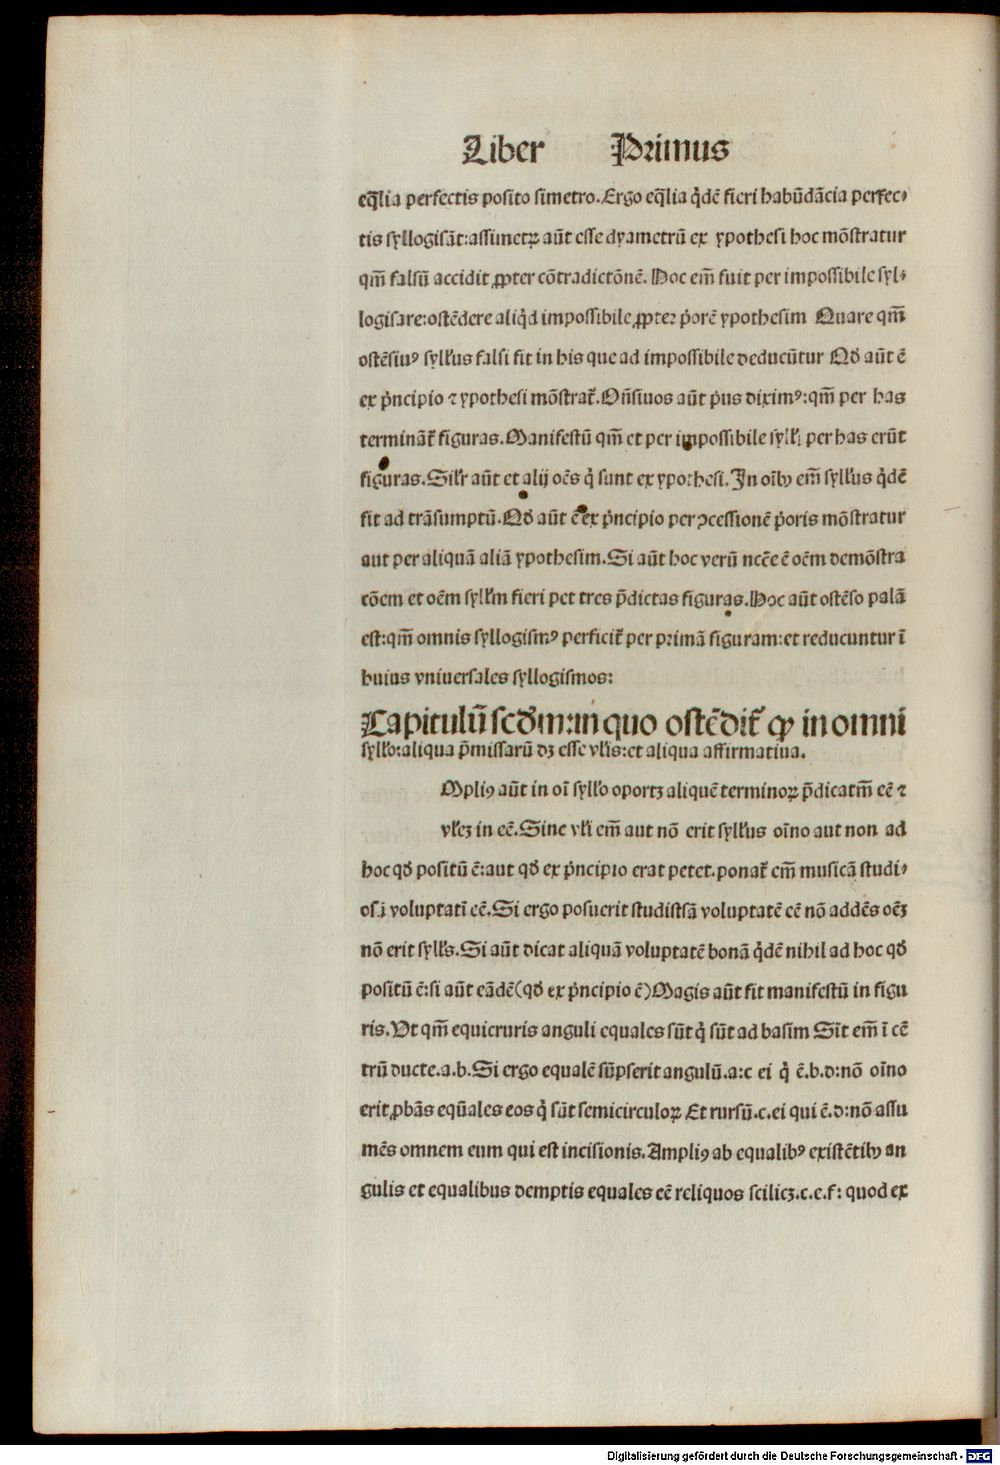 Liber Primus
eq̃lia perfectis posito simetro. Ergo eq̃lia q̇dē fieri habūdācia perfec⸗
tis syllogisāt: assumetꝝ aūt esse dyametrū ex ypothesi hoc mōstratur
qm̄ falsū accidit ꝓpter cōtradictōnē. Hoc em̄ fuit per impossibile syl⸗
logisare: ostēdere aliq̇d impossibile ꝓpter ṗorē ypothesim Quare qm̄
ostēsiuꝰ syllꝰus falsi fit in his que ad impossibile deducūtur Qđ aūt ē
ex ṗncipio ⁊ ypothesi mōstrat᷑. Oñsiuos aūt ṗus diximꝰ: qm̄ per has
termināt᷑ figuras. Manifestū qm̄ et per impossibile sylłi per has erūt
figuras. Silr̄ aūt et alij oēs q̇ sunt ex ypothesi. In oībꝫ em̄ syłłus q̇dē
fit ad trāsumptū. Qđ aūt ē ex ṗncipio per ꝯcessionē ṗoris mōstratur
aut per aliquā aliā ypothesim. Si aūt hoc verū ncēe ē oēm demōstra
tōem et oēm syłłm fieri pet tres p̄dictas figuras. Hoc aūt ostēso palā
est: qm̄ omnis syllogismꝰ perficit᷑ per primā figuram: et reducuntur ī
huius vniuersales syllogismos:
Capitulū scđm: in quo ostēdit᷑ ꝙ in omni
syłło: aliqua p̄missarū dꝫ esse vłis: et aliqua affirmatiua.
Mpliꝰ aūt in oī syłło oportꝫ aliquē terminoꝝ p̄dicatm̄ eē ⁊
vłeꝫ in eē. Sine vłi em̄ aut nō erit syłłus oīno aut non ad
hoc qđ positū ē: aut qđ ex ṗncipio erat petet. ponat᷑ em̄ musicā studi⸗
os.j voluptatī eē. Si ergo posuerit studistsā voluptatē eē nō addēs oēꝫ
nō erit syłłs. Si aūt dicat aliquā voluptatē bonā q̇dē nihil ad hoc qđ
positū ē: si aūt eādē (qđ ex ṗncipio ē) Magis aūt fit manifestū in figu
ris. Vt qm̄ equicruris anguli equales sūt q̇ sūt ad basim Sīt em̄ ī cē
trū ducte .a.b. Si ergo equalē sūpserit angulū .a:c ei q̇ ē .b.d: nō oīno
erit ꝓbās eq̄uales eos q̇ sūt semicirculoꝝ Et rursū .c. ei qui ē .d: nō assu
mēs omnem eum qui est incisionis. Ampliꝰ ab equalibꝰ existētibꝫ an
gulis et equalibus demptis equales eē reliquos scilicꝫ .c.e.f: quod ex
Digitalisierung gefördert durch die Deutsche Forschungsgemeinschaft - DFG